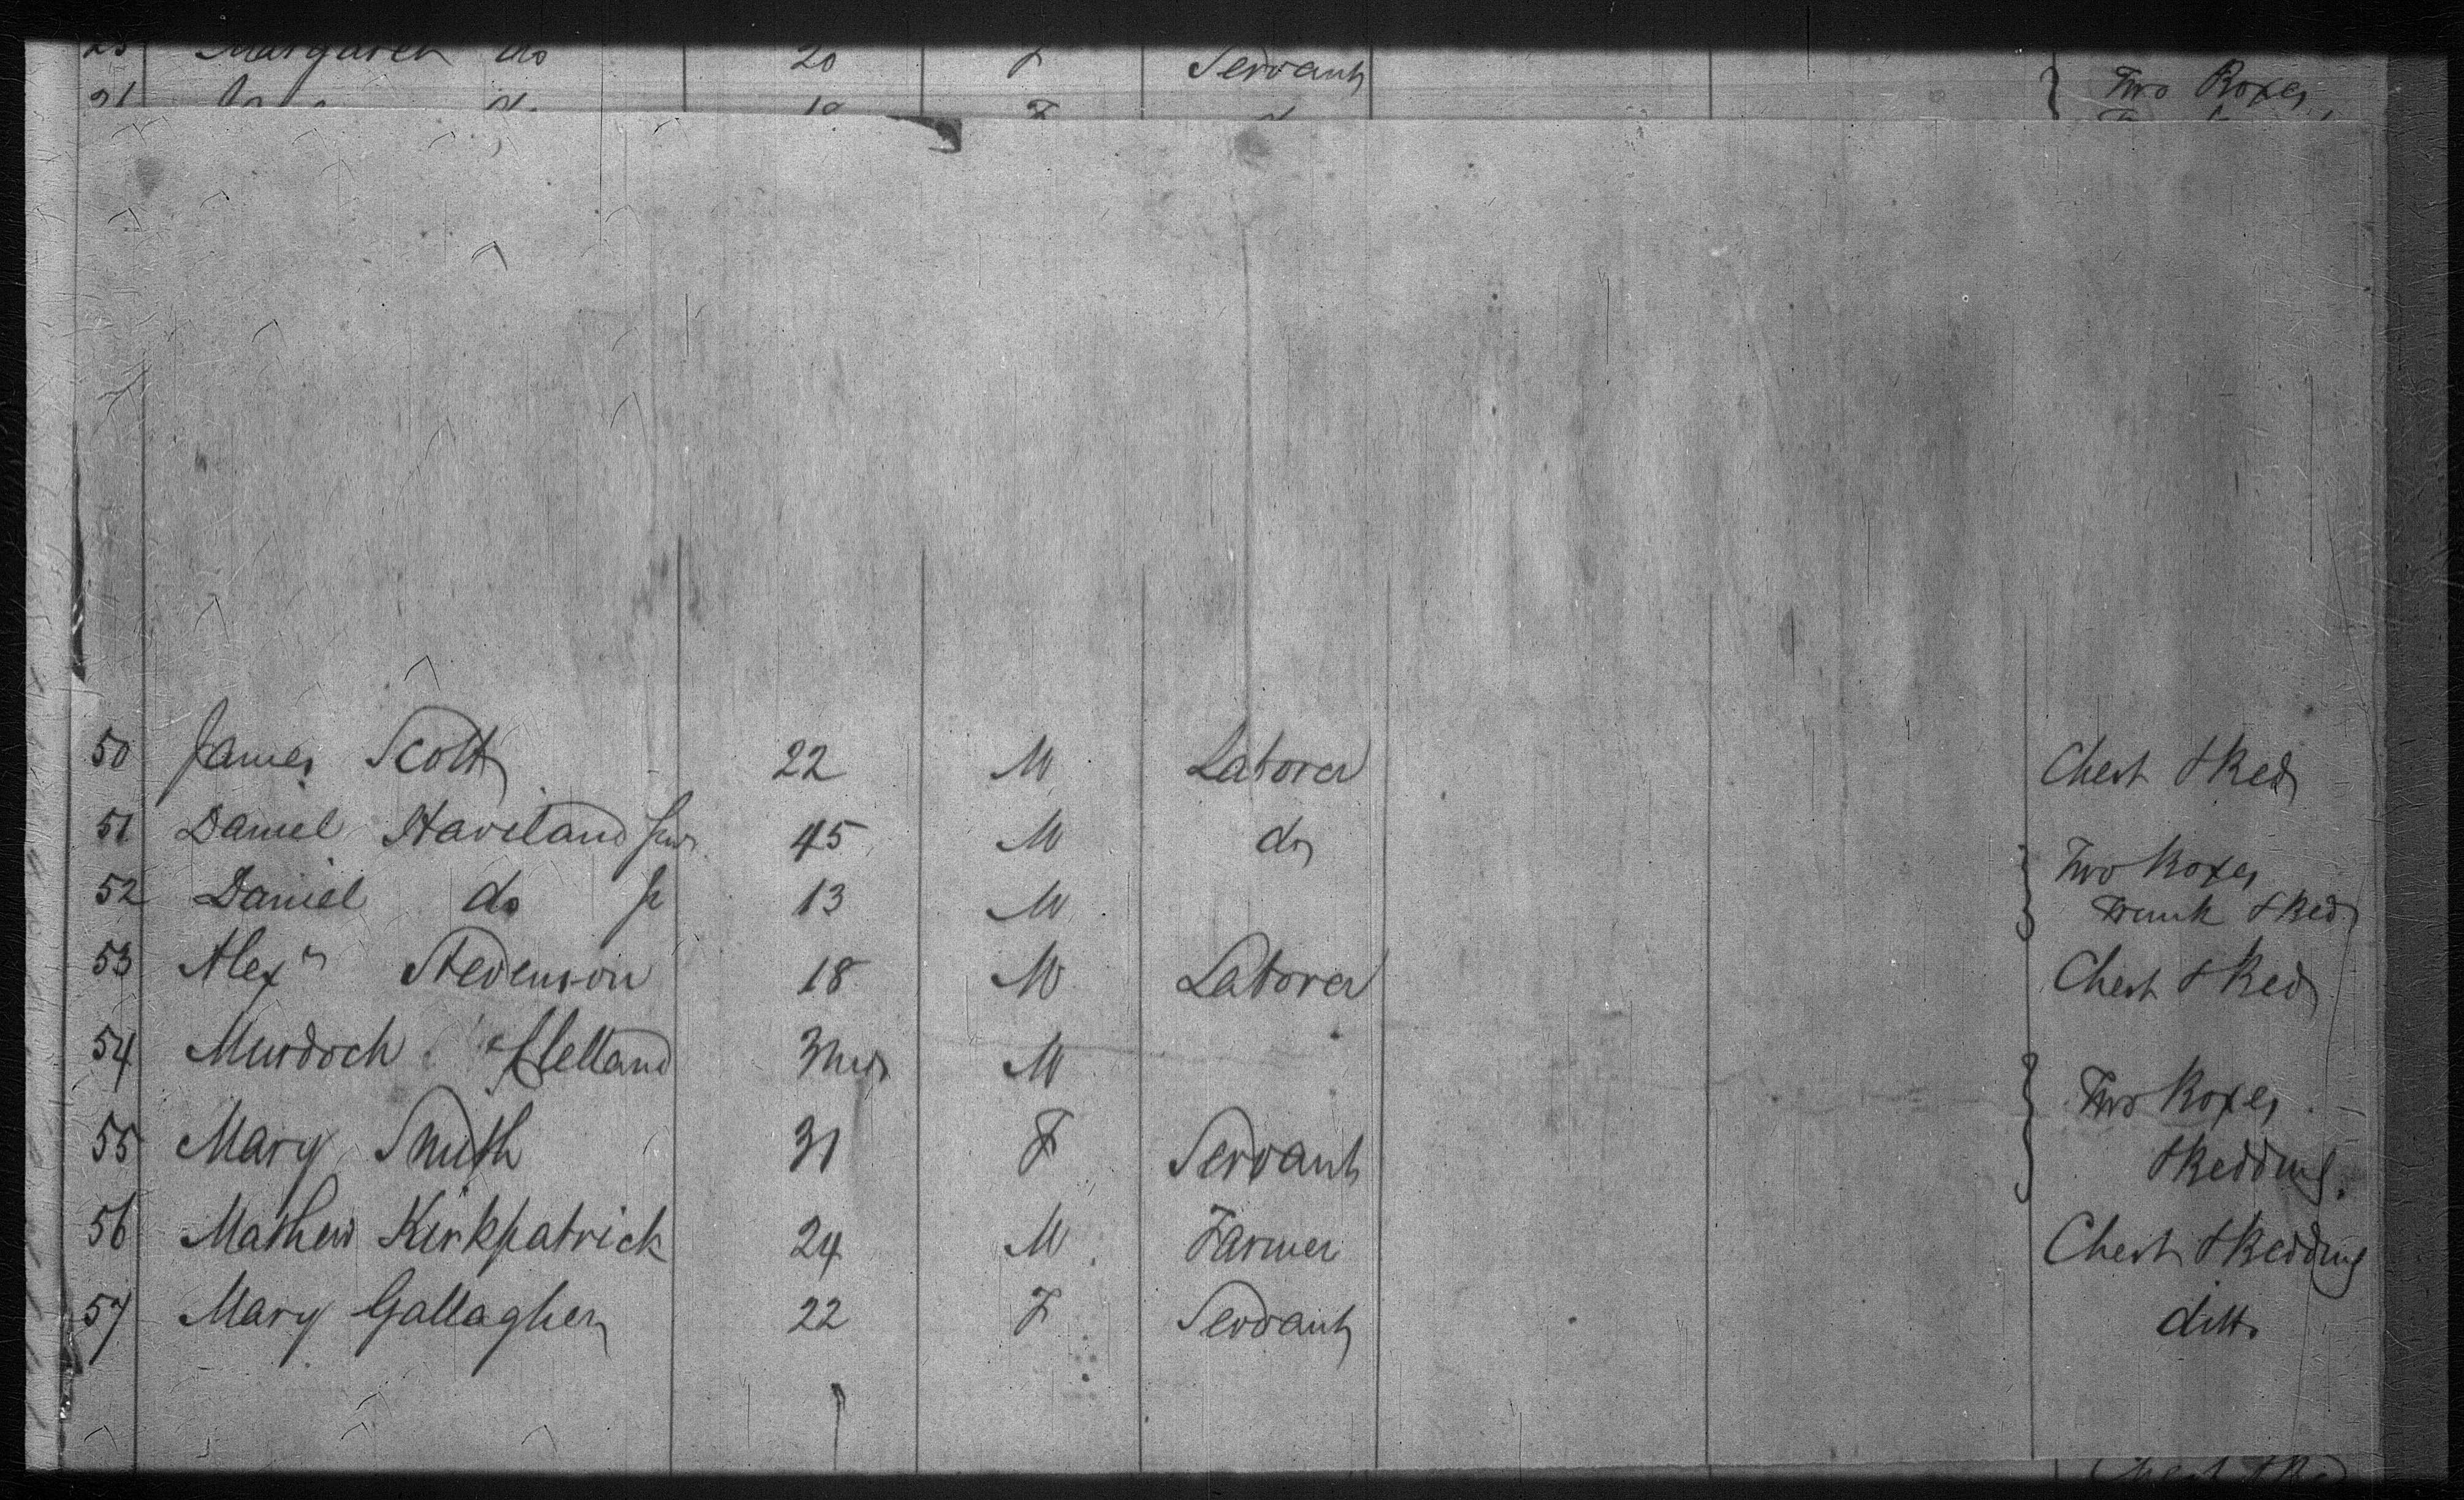 Margaret do 20 F Servant Two Boxes
50 James Scott 22 M Laborer Chest & Bed
51 Daniel Haviland Senr 45 M do Two Boxes
52 Daniel do Jr 13 M Trunk & Bed
53 Alexr Stevenson 18 M Laborer Chest & Bed
54 Murdoch 3 mos M Two Boxes
55 Mary Smith 31 F Servant & Bedding.
56 Mathew Kirkpatrick 24 M Farmer Chest & Bedding
57 Mary Gallagher 22 F Servant ditto